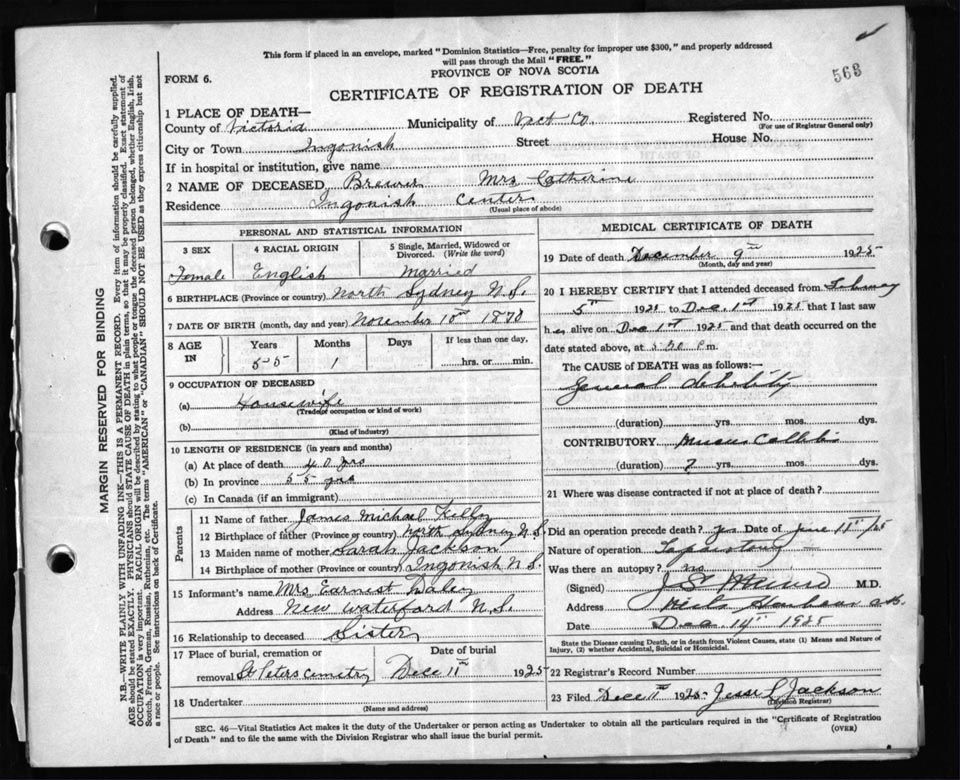 This form if placed in an envelope, marked "Dominion Statistics—Free, penalty for improper use $300," and properly addressed
will pass through the Mail "FREE."
563
FORM 6.
PROVINCE OF NOVA SCOTIA
CERTIFICATE OF REGISTRATION OF DEATH
1 PLACE OF DEATH—
County of Victoria Municipality of Vict Co. Registered No.
(For use of Registrar General only)
City or Town Ingonish Street House No.
If in hospital or institution, give name
2 NAME OF DECEASED Brewer Mrs Catherine
Residence Ingonish Center
(Usual place of abode)
PERSONAL AND STATISTICAL INFORMATION
3 SEX 4 RACIAL ORIGIN 5 Single, Married, Widowed or Divorced. (Write the word)
Female English Married
6 BIRTHPLACE (Province or country) North Sydney N.S.
7 DATE OF BIRTH (month, day and year) November 10th 1870
8 AGE IN Years Months Days If less than one day,
55 1 hrs. or min.
9 OCCUPATION OF DECEASED
(a) Housewife
(Trade, occupation or kind of work)
(b)
(Kind of industry)
10 LENGTH OF RESIDENCE (in years and months)
(a) At place of death 40 yrs
(b) In province 55 yrs
(c) In Canada (if an immigrant)
Parents
11 Name of father James Michael Kelly
12 Birthplace of father (Province or country) North Sydney N.S.
13 Maiden name of mother Sarah Jackson
14 Birthplace of mother (Province or country) Ingonish N.S.
15 Informant's name Mrs Earnest
Address New Waterford N.S.
16 Relationship to deceased Sister
17 Place of burial, cremation or removal St Peters Cemetry
Date of burial
Dec 11 1925
18 Undertaker
(Name and address)
MEDICAL CERTIFICATE OF DEATH
19 Date of death December 9th 1925
(Month, day and year)
20 I HEREBY CERTIFY that I attended deceased from
5th 1925 to Dec. 1st 1925 that I last saw
her alive on Dec 1st 1925 and that death occurred on
date stated above, at 5.30 P.m.
The CAUSE of DEATH was as follows:—
General debility
(duration) yrs. mos. dys.
CONTRIBUTORY Mucus Colitis
(duration) yrs. mos. dys.
21 Where was disease contracted if not at place of death?
Did an operation precede death? yes Date of June 11th/25
Nature of operation
Was there an autopsy? no
(Signed) M.D.
Address Neils Harbour
Date Dec 14th 1925
State the Disease causing Death, or in death from Violent Causes, state (1) Means and Nature of
Injury, (2) whether Accidental, Suicidal or Homicidal.
22 Registrar's Record Number
23 Filed Dec 11 1925 Jesse L Jackson
(Division Registrar)
SEC. 46—Vital Statistics Act makes it the duty of the Undertaker or person acting as Undertaker to obtain all the particulars required in the "Certificate of Registration
of Death" and to file the same with the Division Registrar who shall issue the burial permit. (OVER)
MARGIN RESERVED FOR BINDING
N.B.—WRITE PLAINLY WITH UNFADING INK—THIS IS A PERMANENT RECORD. Every item of information should be carefully supplied.
AGE should be stated EXACTLY. PHYSICIANS should STATE CAUSE OF DEATH in plain terms, so that it may be properly classified. Exact statement of
OCCUPATION is very important. RACIAL ORIGIN will be described by stating to what people or tongue the deceased person belonged, whether English, Irish,
Scotch, French, German, Russian, Ruthenian, etc. The terms "AMERICAN" or "CANADIAN" SHOULD NOT BE USED as they express citizenship but not
a race or people. See instructions on back of Certificate.